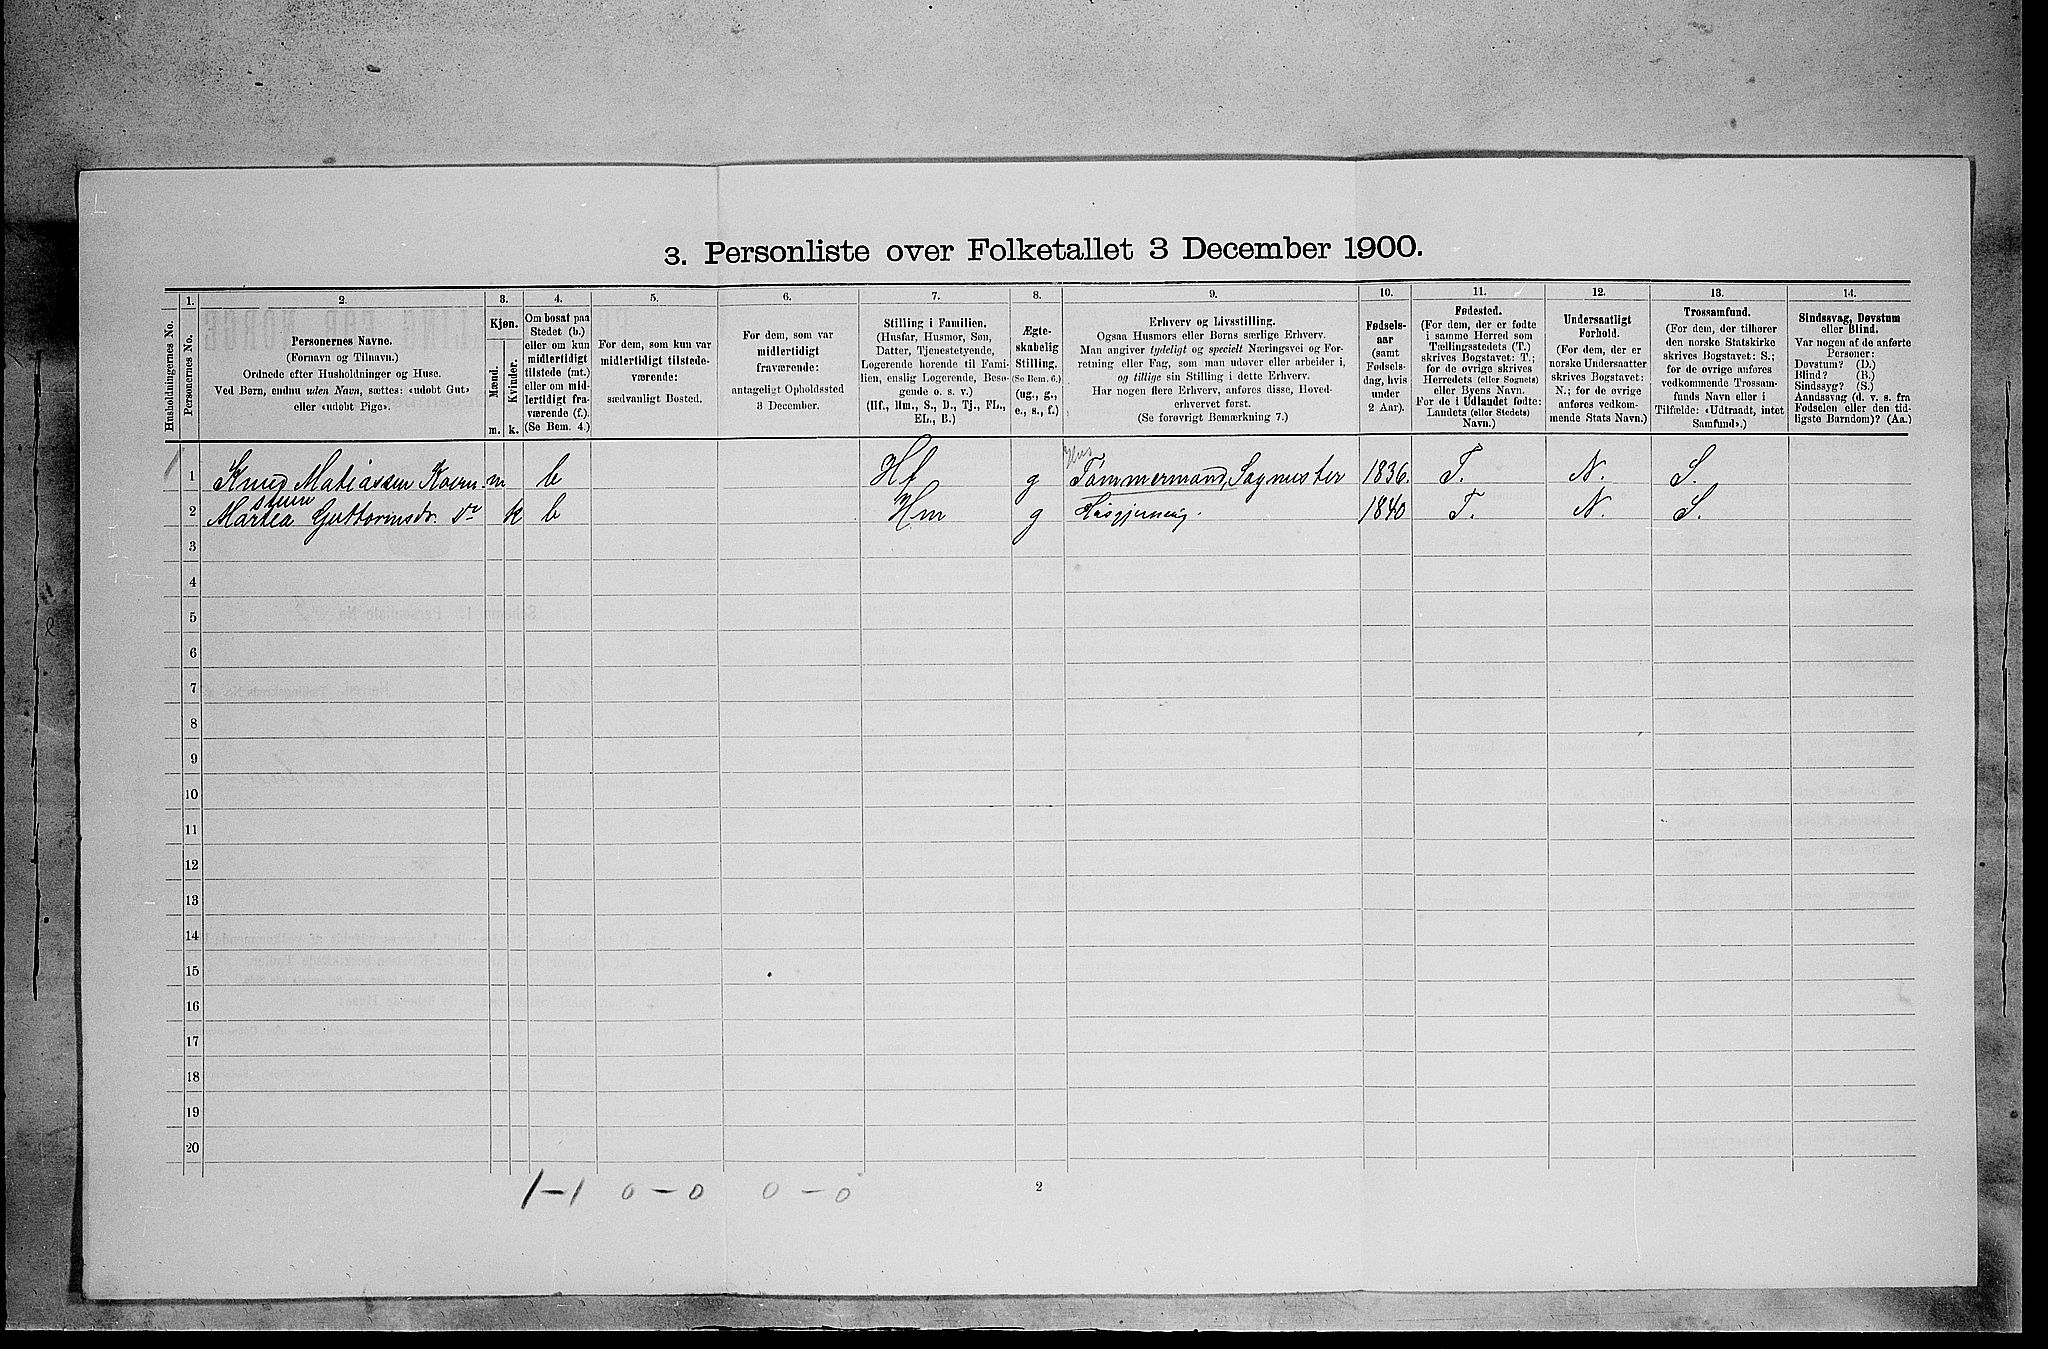 3. Personliste over Folketallet 3 December 1900.
Husholdningernes No.
1.
Personernes No.
2.
Personernes Navne.
(Fornavn og Tilnavn.)
Ordnede efter Husholdninger og Huse.
Ved Børn, endnu uden Navn, sættes: «udøbt Gut»
eller «udøbt Pige».
3.
Kjøn.
Mænd.
Kvinder.
m. k.
4.
Om bosat paa
Stedet (b.)
eller om kun
midlertidigt
tilstede (mt.)
eller om mid-
lertidigt fra-
værende (f.).
(Se Bem. 4.)
5.
For dem, som kun var
midlertidigt tilstede-
værende:
sædvanligt Bosted.
6.
For dem, som var
midlertidigt
fraværende:
antageligt Opholdssted
3 December.
7.
Stilling i Familien.
(Husfar, Husmor, Søn,
Datter, Tjenestetyende,
Logerende hørende til Fami-
lien, enslig Logerende, Besø-
gende o. s. v.)
(Hf., Hm., S., D., Tj., FL.,
EL., B.)
8.
Ægte-
skabelig
Stilling.
(Se Bem. 6.)
(ug., g.,
e., s., f.)
9.
Erhverv og Livsstilling.
Ogsaa Husmors eller Børns særlige Erhverv.
Man angiver tydeligt og specielt Næringsvei og For-
retning eller Fag, som man udøver eller arbeider i,
og tillige sin Stilling i dette Erhverv.
Har nogen flere Erhverv, anføres disse, Hoved-
erhvervet først.
(Se forøvrigt Bemærkning 7.)
10.
Fødsels-
aar
(samt
Fødsels-
dag, hvis
under
2 Aar).
11.
Fødested.
(For dem, der er fødte
i samme Herred som
Tællingsstedets (T.)
skrives Bogstavet: T.;
for de øvrige skrives
Herredets (eller Sognets)
eller Byens Navn.
For de i Udlandet fødte:
Landets (eller Stedets)
Navn.)
12.
Undersaatligt
Forhold.
(For dem, der er
norske Undersaatter
skrives Bogstavet:
N.; for de øvrige
anføres vedkom-
mende Stats Navn.)
13.
Trossamfund.
(For dem, der tilhører
den norske Statskirke
skrives Bogstavet: S.;
for de øvrige anføres
vedkommende Trossam-
funds Navn eller i
Tilfælde: «Udtraadt, intet
Samfund».)
14.
Sindssvag, Døvstum
eller Blind.
Var nogen af de anførte
Personer:
Døvstum? (D.)
Blind? (B.)
Sindssyg? (S.)
Aandssvag (d. v. s. fra
Fødselen eller den tid-
ligste Barndom)? (Aa.)
Hus
1 1 Knud Matiassen Kværn- m b Hf g Tømmermand, Sagmester 1836. T. N. S.
stuen
2 Martea Guttormsdr. do k b Hm g Husgjerning. 1840 T. N. S.
3
4
5
6
7
8
9
10
11
12
13
14
15
16
17
18
19
20
1-1 0-0 0-0
2